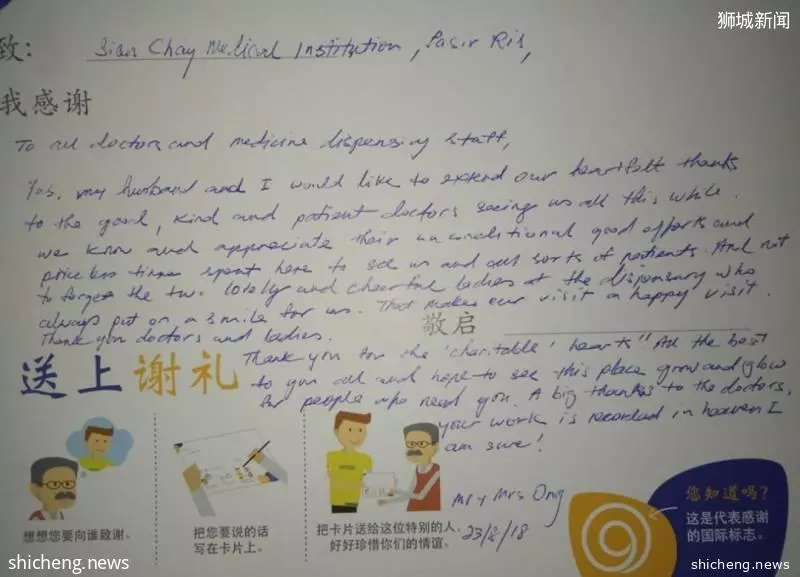 狮城新闻
致: Sian Chay Medical Institution, Pasir Ris,
我感谢
To all doctors and medicine dispensing staff,
Yes, my husband and I would like to extend our heartfelt thanks
to the good, kind and patient doctors seeing us all this while.
We know and appreciate their unconditional good efforts and
priceless times spent here to see us and all sorts of patients. And not
to forget the two lovely and cheerful ladies at the dispensary who
always put on a smile for us. That makes our visit a happy visit.
Thank you doctors and ladies.
敬启
Thank you for the 'charitable' hearts" All the best
to you all and hope to see this place grow and glow
for people who need you. A big thanks to the doctors,
your work is recorded in heaven I
am sure!
Mr & Mrs Ong
23/8/18
送上谢礼
想想您要向谁致谢。
把您要说的话
写在卡片上。
把卡片送给这位特别的人,
好好珍惜你们的情谊。
您知道吗?
这是代表感谢
的国际标志。
shicheng.news
shicheng.news